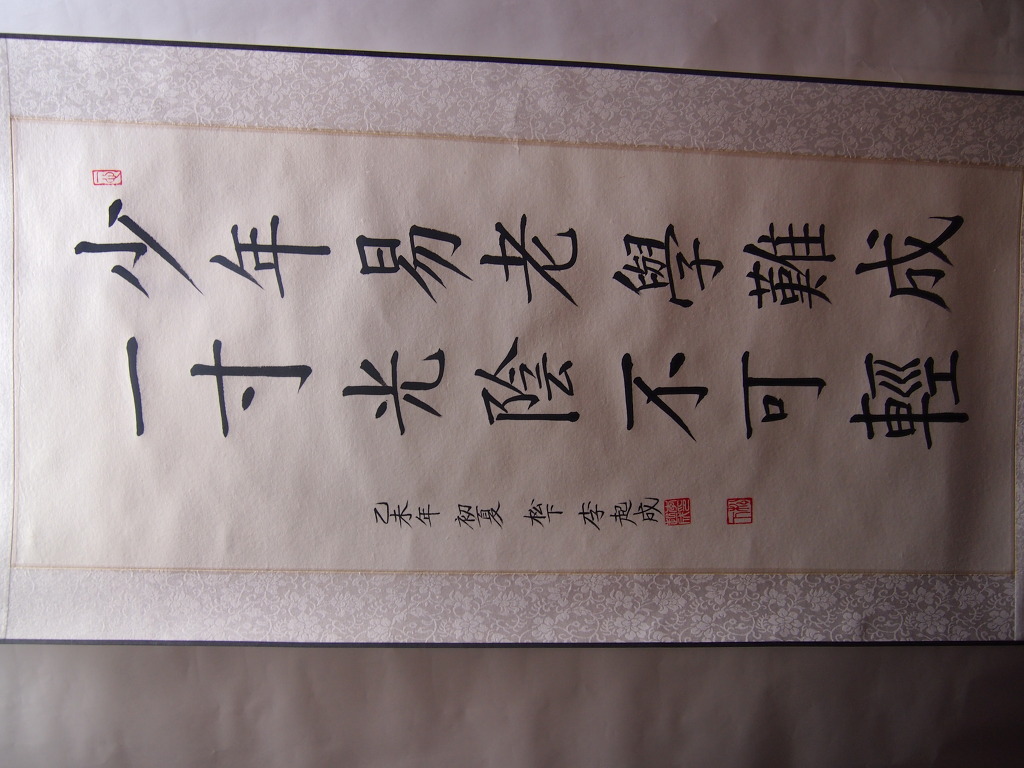 少年易老學難成
一寸光陰不可輕
乙未年 初夏 松下 李起成